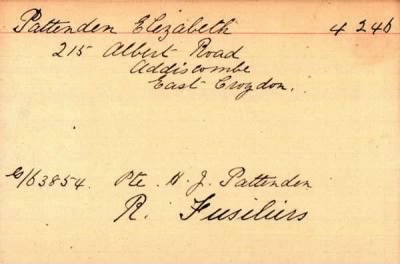 Pattenden Elizabeth 4246
215 Albert Road
Addiscombe
East Croydon.
G/63854. Pte. H. J. Pattenden
R. Fusiliers